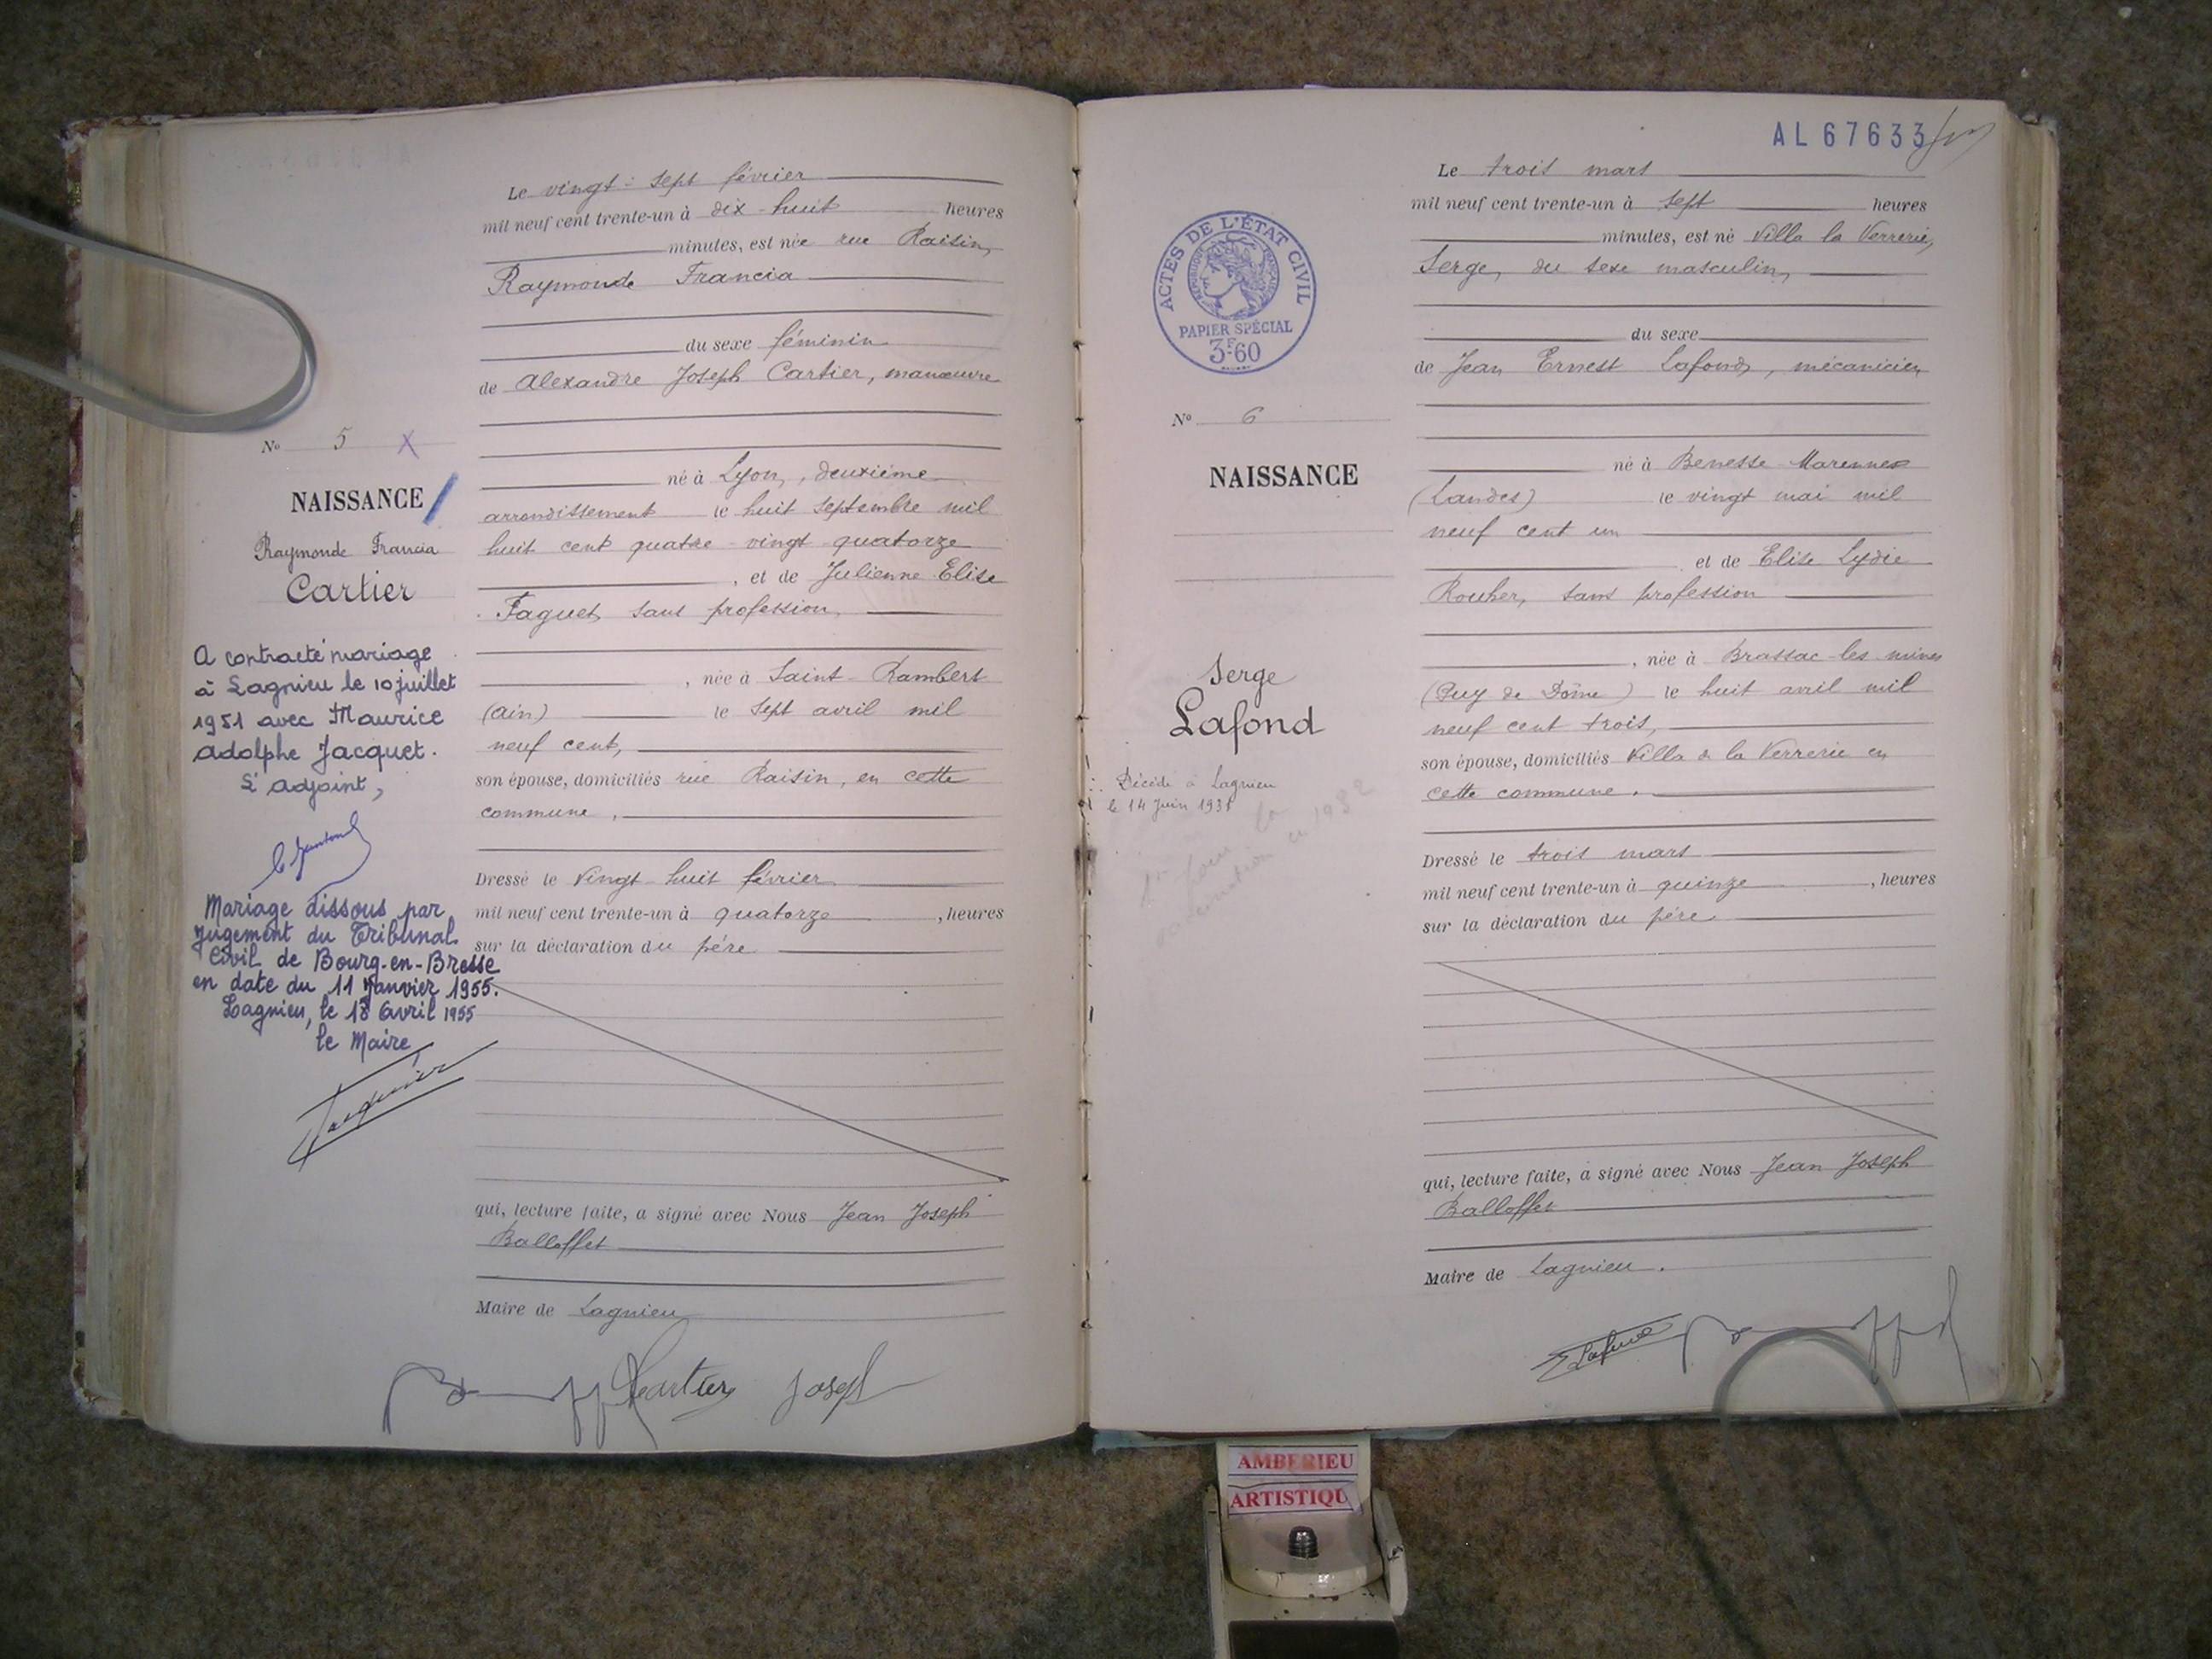 Le vingt-sept février
mil neuf cent trente-un à dix-huit heures
minutes, est née rue Raisin,
Raymonde Francia
du sexe féminin
de Alexandre Joseph Cartier, manœuvre
né à Lyon, deuxième
arrondissement le huit septembre mil
huit cent quatre-vingt-quatorze
, et de Julienne Elise
Faguet, sans profession,
, née à Saint-Rambert
(Ain) le sept avril mil
neuf cent,
son épouse, domiciliés rue Raisin, en cette
commune,
Dressé le vingt-huit février
mil neuf cent trente-un à quatorze , heures
sur la déclaration du père
qui, lecture faite, a signé avec Nous Jean Joseph
Balloffet
Maire de Lagnieu
Cartier Joseph
No 5 X
NAISSANCE
Raymonde Francia
Cartier
A contracté mariage
à Lagnieu le 10 juillet
1951 avec Maurice
Adolphe Jacquet.
L'adjoint,
Mariage dissous par
jugement du Tribunal
Civil de Bourg-en-Bresse
en date du 11 Janvier 1955.
Lagnieu, le 18 Avril 1955
le Maire,
AL 67633
ACTES DE L'ÉTAT CIVIL
RÉPUBLIQUE FRANÇAISE
PAPIER SPÉCIAL
3F60
No 6
NAISSANCE
Serge
Lafond
Décédé à Lagnieu
le 14 Juin 193
Le trois mars
mil neuf cent trente-un à sept heures
minutes, est né Villa la Verrerie,
Serge, du sexe masculin,
du sexe
de Jean Ernest Lafond, mécanicien
né à Benesse Marennes
(Landes) le vingt mai mil
neuf cent un
et de Elise Lydie
Roucher, sans profession
, née à Brassac-les-mines
(Puy de Dôme) le huit avril mil
neuf cent trois,
son épouse, domiciliés Villa de la Verrerie en
cette commune.
Dressé le trois mars
mil neuf cent trente-un à quinze , heures
sur la déclaration du père.
qui, lecture faite, a signé avec Nous Jean Joseph
Balloffet
Maire de Lagnieu.
AMBERIEU
ARTISTIQU